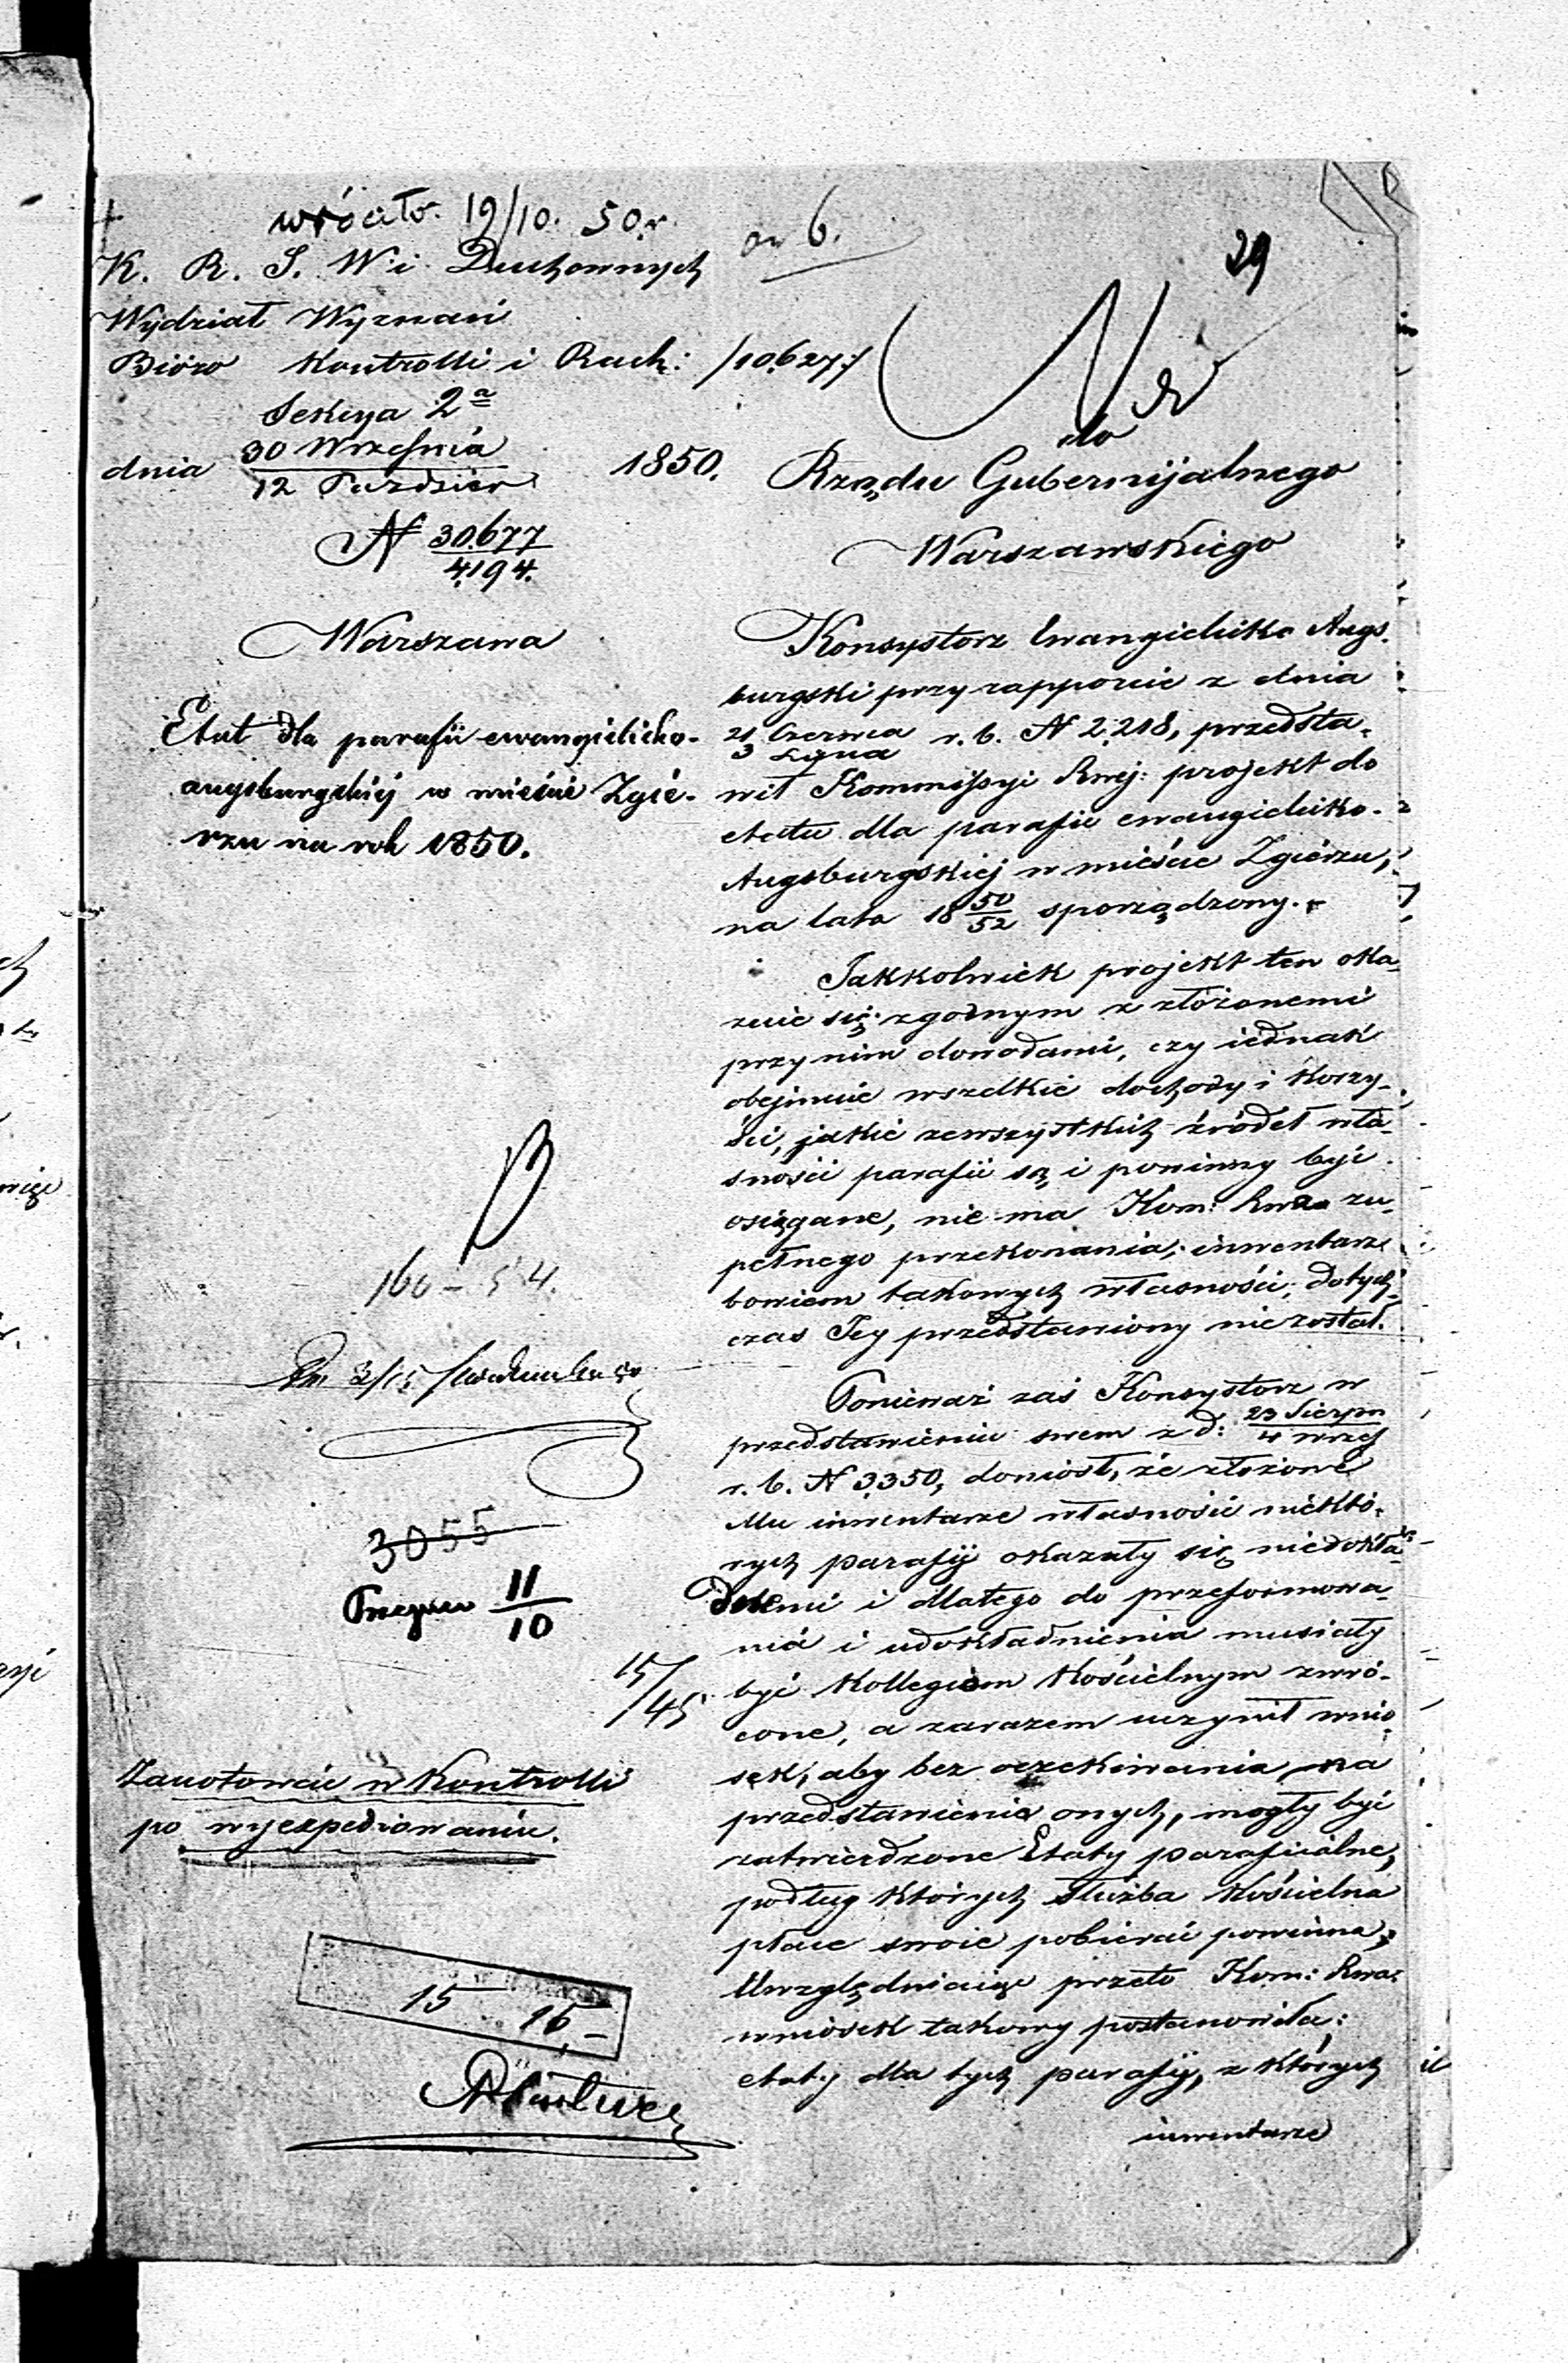 wróciło. 19/10. 50 r.
29
K. R. S. W i Duchownych
Wydział Wyznań
Bióro Kontrolli i Rach: /10627/
Sekcya 2a
dnia 30 Września / 12 Paździer 1850.
N 30677 / 4194.
Warszawa
Etat dla parafii ewangielicko-
augsburgskiéj w mieście Zgié-
rzu na rok 1850.
3055
11/10
15/45
Zanotować w Kontrolli
po wyexpediowaniu.
15 16,-
do
Rządu Gubernijalnego
Warszawskiego
Konsystorz Ewangielicko Augs-
burgski przy rapporcie z dnia
21 Czerwca / 3 Lipca r. b. N 2218, przedsta-
wił Kommissyi Rwej: projekt do
etatu dla parafii ewangielicko-
Augsburgskiej w mieście Zgiérzu,
na lata 18 50/52 sporządzony.
Jakkolwiek projekt ten oka-
zuie się zgodnym z złożonemi
przy nim dowodami, czy iednak
obejmuie wszelkie dochody i korzy-
ści, jakie zewszystkich źródeł wła-
sności parafii są i powinny być
osiągane, nie ma Kom: Rwa zu-
pełnego przekonania, inwentarz
bowiem takowych własności, dotych-
czas Jey przedstawiony nie został.
Ponieważ zaś Konsystorz w
przedstawieniu swem z d: 23 Sierpn / 4 Wrześ
r. b. N 3350, doniosł, że złożone
Mu inwentarze własności niektó-
rych parafij okazały się niedokła-
dnemi i dlatego do przeformowa-
nia i udokładnienia musiały
być Kollegiom Kościelnym zwró-
cone, a zarazem uczynił wnio-
sek, aby bez oczekiwania na
przedstawienie onych, mogły być
zatwierdzone Etaty parafiialne,
podług których służba Kościelna
płace swoie pobierać powinna,
Uwzględniaiąc przeto Kom: Rwa
wniosek takowy postanowiła:
etaty dla tych parafij, z których
inwentarze